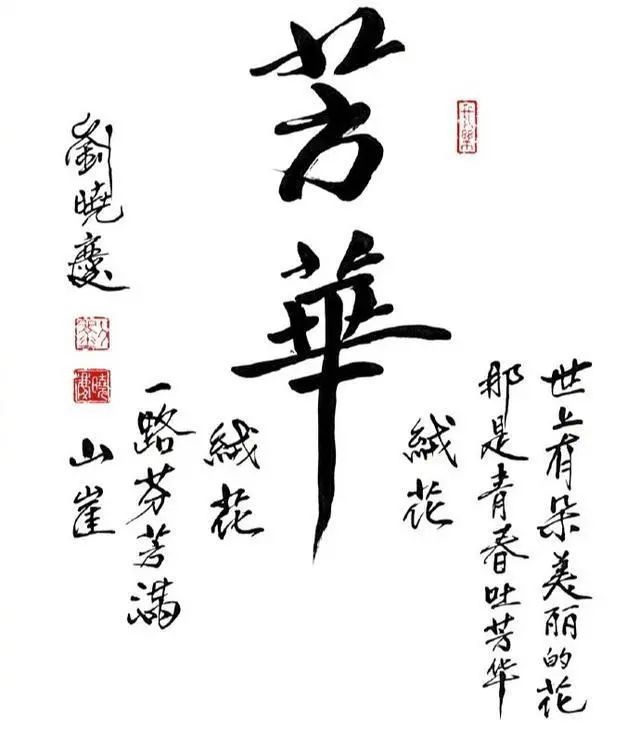 芳華
世上有朵美丽的花
那是青春吐芳华
絨花
絨花
一路芬芳满
山崖
劉曉慶